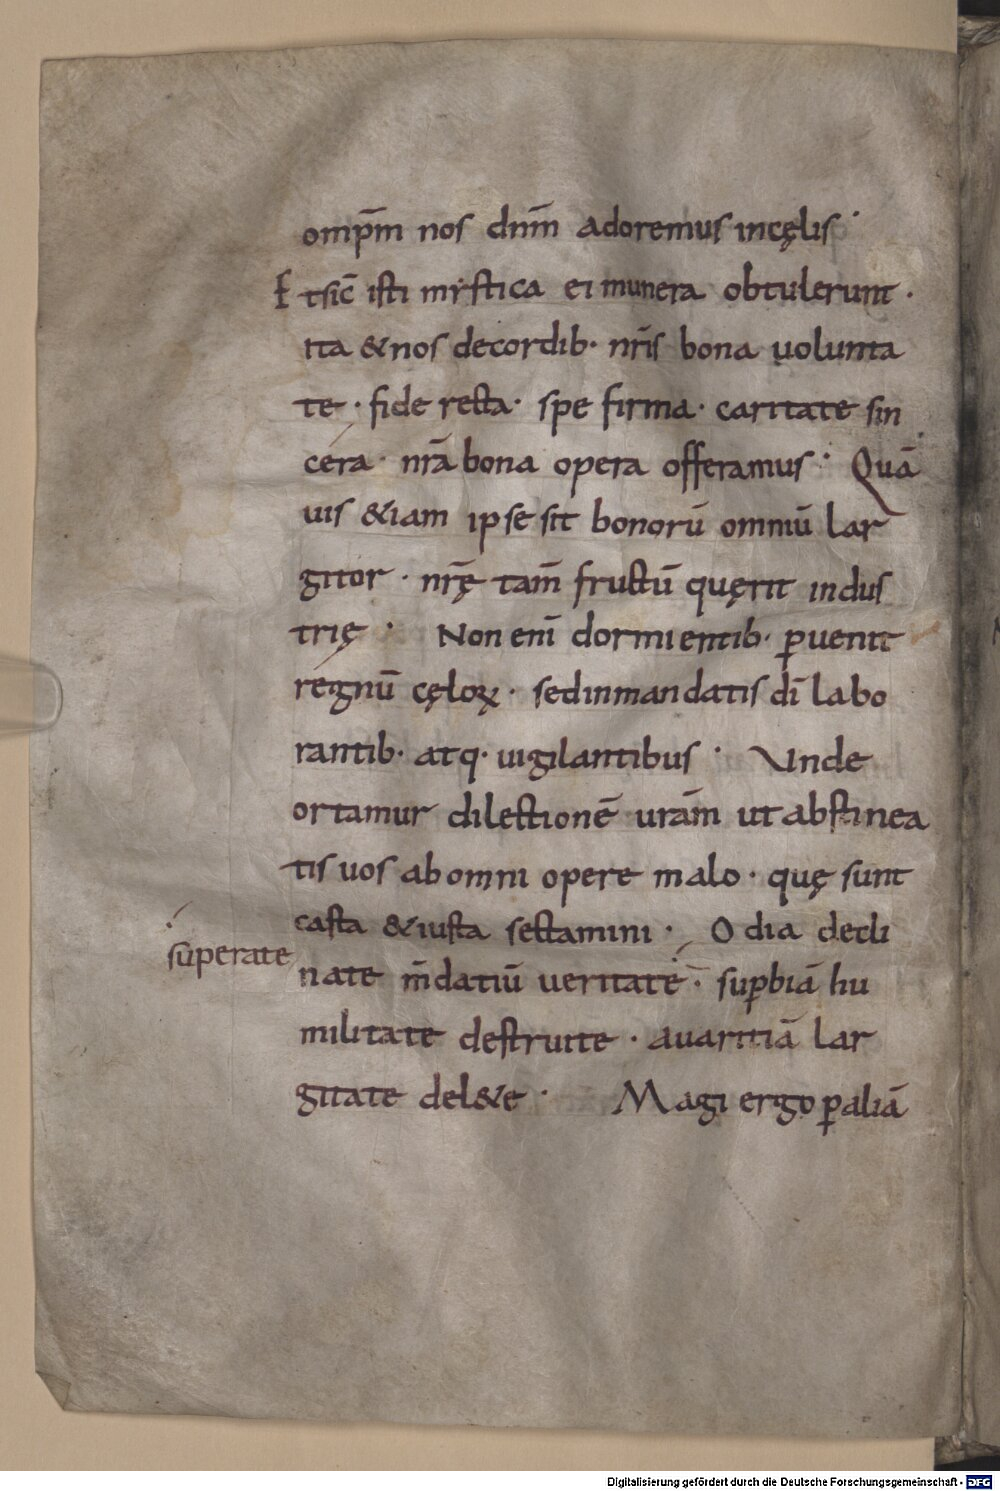 omp̄m nos dn̄m adoremus incęlis ·
Et sic̄ isti mẏstica ei munera obtulerunt ·
ita & nos decordib· nr̄is bona uolunta
te · fide recta · spe firma · caritate sin
céra · nr̄ā bona opera offeramus · Quā
uis & iam ipse sit bonorū omniū lar
gitor · nr̄ę tam̄ fructū quęrit indus
trię · Non enī dormientib· ꝑuenit
regnū cęloꝝ · sed inmandatis dī labo
rantib· atq· uigilantibus · Unde
ortamur dilectionē urām ut abstinea
tis uos ab omni opere malo · quę sunt
casta & iusta sectamini · Odia decli
superate
nate m̄datiū ueritate · suꝑbiā hu
militate destruite · auaritiā lar
gitate del&e · Magi ergo ꝑ aliā
Digitalisierung gefördert durch die Deutsche Forschungsgemeinschaft - DFG